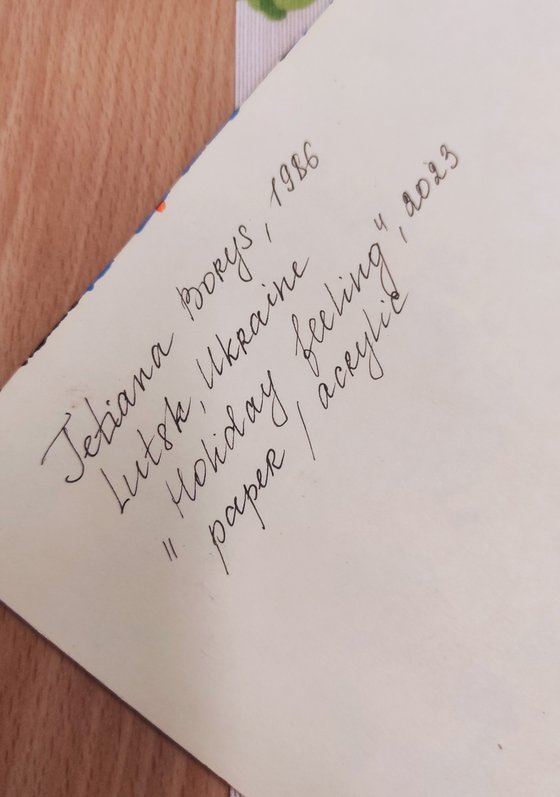 Tetiana Borys, 1986
Lutsk, Ukraine
"Holiday feeling", 2023
paper / acrylic